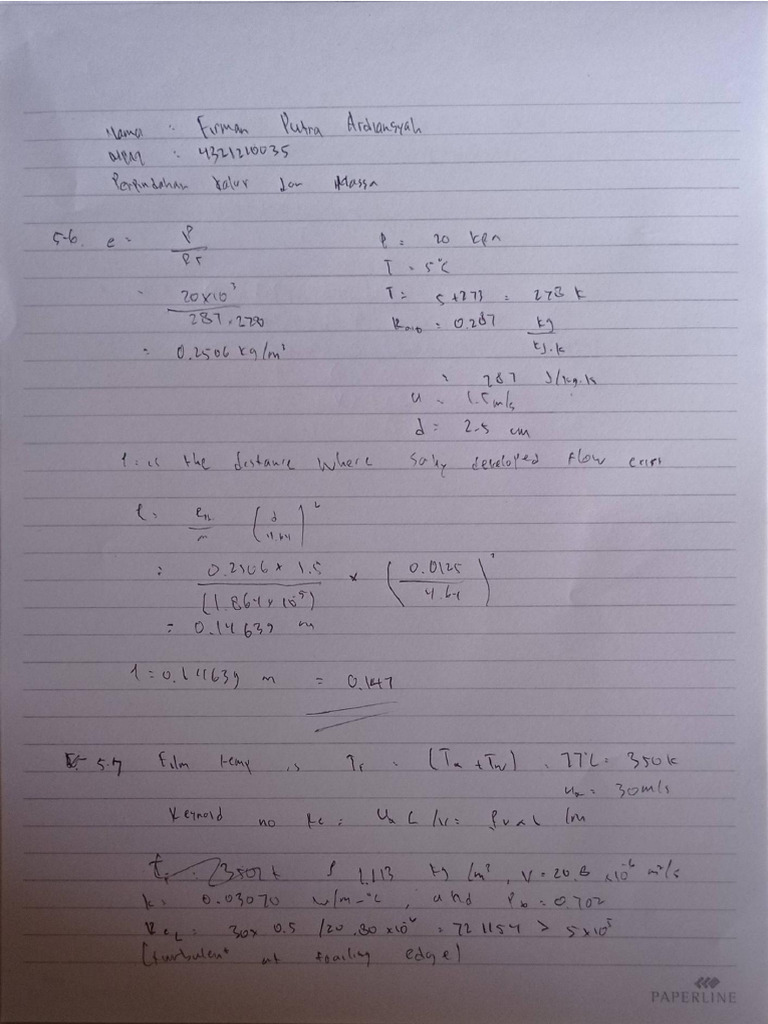 Nama : Firman Putra Ardiansyah
NPM : 4321210035
Perpindahan Kalor dan Massa
5-6. e = P / RT
P = 20 kPa
T = 5°C
= 20×10³ / 287.278
T = 5+273 = 278 K
= 0.2506 kg/m³
= 0.287 kg / kJ.K
= 287 J/kg.K
u = 1.5 m/s
d = 2.5 cm
l = is the distance where developed flow
l =
= 0.2506 × 1.5 / (1.864 × 10⁻⁵) × (0.0125 / 4.64)²
= 0.14639 m
l = 0.14639 m = 0.147
5.7 Film temp is Tf = (T∞ + Tw) = 77°C = 350 K
u∞ = 30 m/s
Reynold no Re = U∞ L /v =
350 K ρ 1.113 kg /m³, V = 20.8 ×10⁻⁶ m²/s
k = 0.03070 w/m-°C, and = 0.702
ReL = 30× 0.5 /20.80 ×10⁻⁶ = 721154 > 5×10⁵
(turbulent at trailing edge)
PAPERLINE